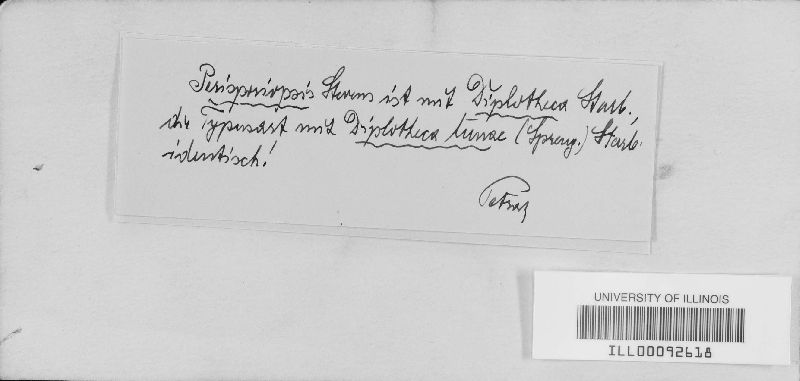 Perisporiopsis Stevens ist mit Diplotheca Starb.,
die Typusart mit Diplotheca tunae (Spreng.) Starb.
identisch!
Petrak
UNIVERSITY OF ILLINOIS
ILL00092618